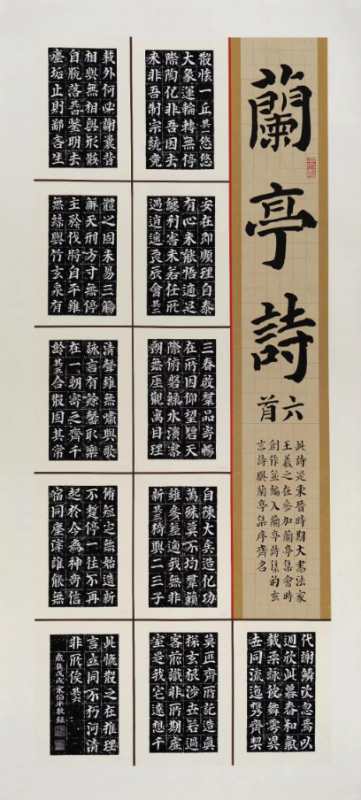 蘭亭詩
六首
此詩是東晉時期大書法家
王羲之在參加蘭亭集會時
創作並編入蘭亭詩集的玄
言詩與蘭亭集序齊名
代謝鱗次忽焉以
周欣此暮春和氣
載柔詠彼舞雩異
世同流迺攜齊契
散懷一丘其一悠悠
大象運輪轉無停
際陶化非吾因去
來非吾制宗統竟
安在即順理自泰
有心未能悟適足
纏利害未若任所
遇逍遙良辰會其二
三春啟群品寄暢
在所因仰望碧天
際俯磐綠水濱寥
朗無厓觀寓目理
自陳大矣造化功
萬殊莫不均群籟
雖參差適我無非
新其三猗與二三子
莫匪齊所託造真
探玄根涉世若過
客前識非所期虛
室是我宅遠想千
載外何必謝曩昔
相與無相與形骸
自脫落其四鑒明去
塵垢止則鄙吝生
體之固未易三觴
解天刑方寸無停
主矜伐將自平雖
無絲與竹玄泉有
清聲雖無嘯與歌
詠言有餘馨取樂
在一朝寄之齊千
齡其五合散固其常
脩短定無始造新
不暫停一往不再
起於今為神奇信
宿同塵滓誰能無
此慨散之在推理
言立同不朽河清
非所俟其六
戊戌宋伯平敬錄